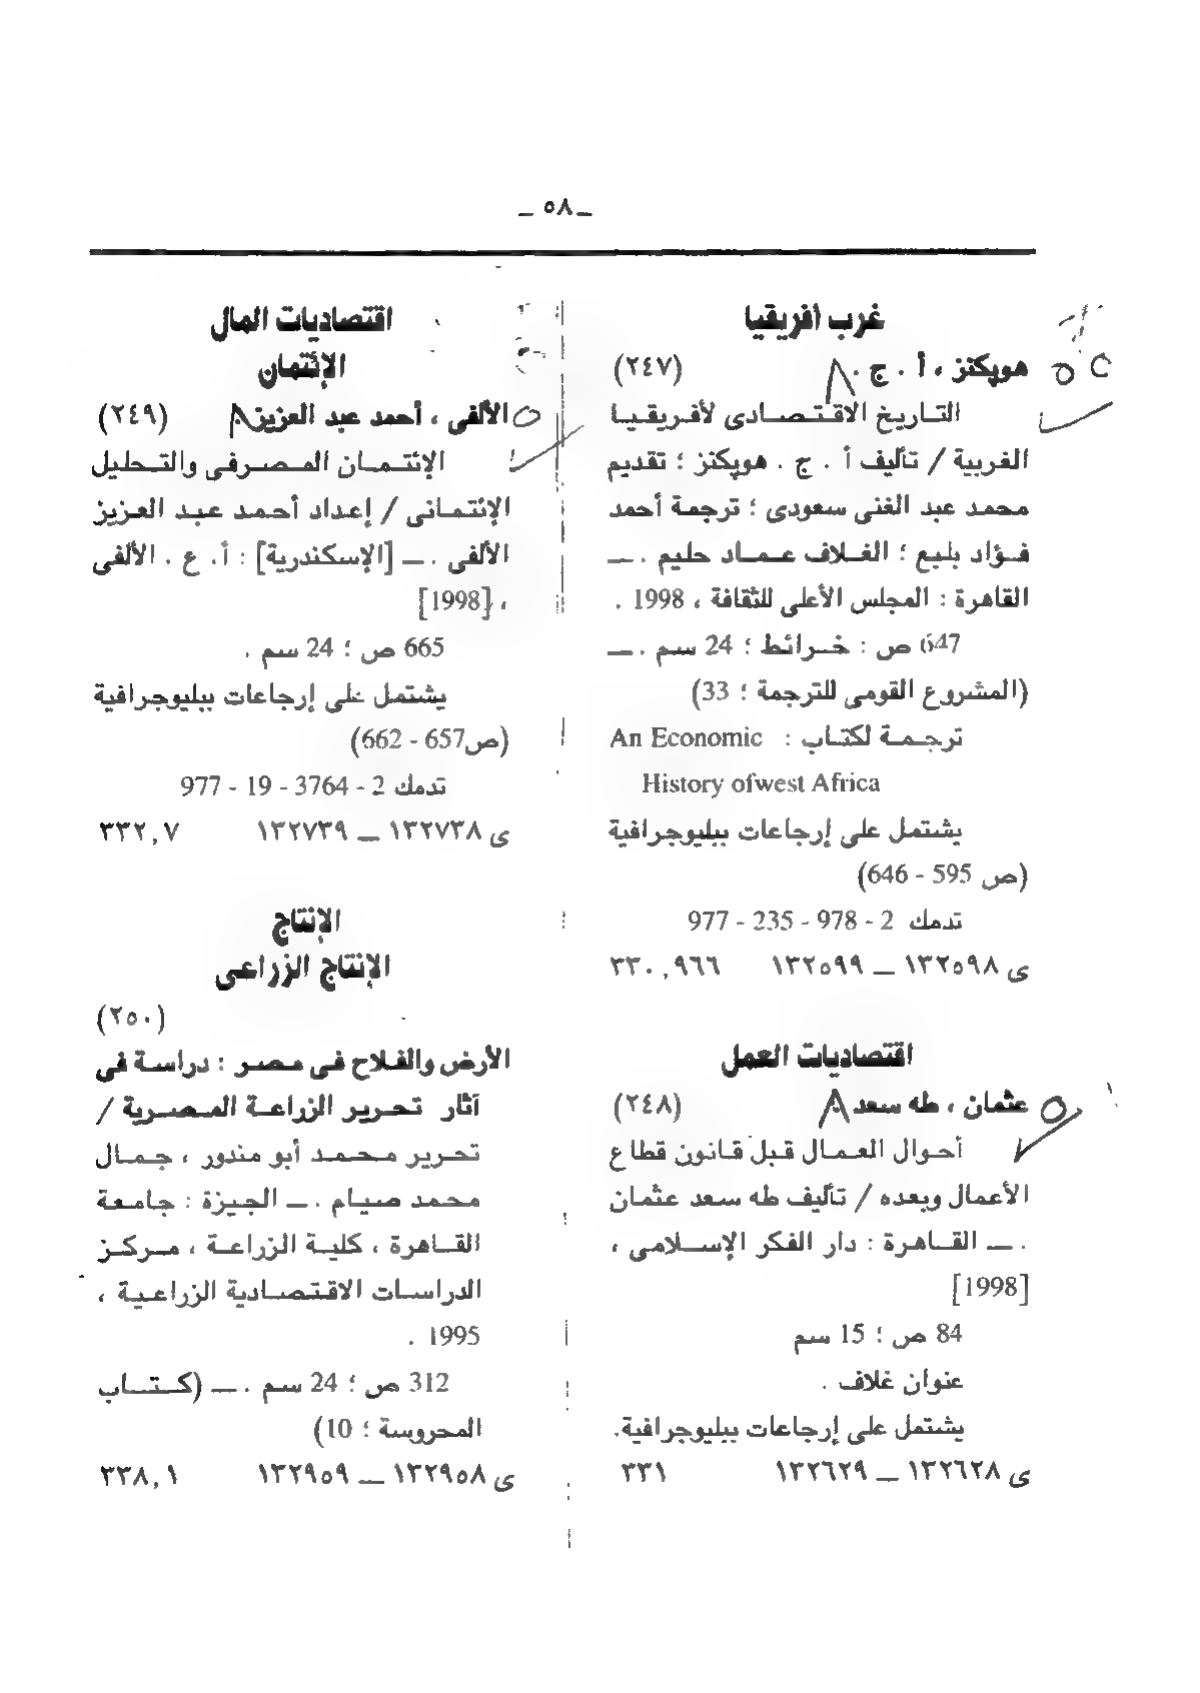 ـ ٥٨ ـ
غرب أفريقيا
هوپكنز ، أ . ج . (٢٤٧)
التاريخ الاقتصادى لأفريقيا
الغربية / تأليف أ . ج . هوپكنز ؛ تقديم
محمد عبد الغنى سعودى ؛ ترجمة أحمد
فؤاد بلبع ؛ الغلاف عماد حليم . ــ
القاهرة : المجلس الأعلى للثقافة ، 1998 .
647 ص : خرائط ؛ 24 سم . ــ
(المشروع القومى للترجمة ؛ 33)
ترجمة لكتاب : An Economic
History ofwest Africa
يشتمل على إرجاعات ببليوجرافية
(ص 595 - 646)
تدمك 2 - 978 - 235 - 977
ى ١٣٢٥٩٨ ــ ١٣٢٥٩٩ ٣٣٠,٩٦٦
اقتصاديات العمل
عثمان ، طه سعد (٢٤٨)
أحوال العمال قبل قانون قطاع
الأعمال وبعده / تأليف طه سعد عثمان
. ــ القاهرة : دار الفكر الإسلامى ،
[1998]
84 ص ؛ 15 سم
عنوان غلاف .
يشتمل على إرجاعات ببليوجرافية.
ى ١٣٢٦٢٨ ــ ١٣٢٦٢٩ ٣٣١
اقتصاديات المال
الإئتمان
الألفى ، أحمد عبد العزيز (٢٤٩)
الإئتمان المصرفى والتحليل
الإئتمانى / إعداد أحمد عبد العزيز
الألفى . ــ [الإسكندرية] : أ. ع . الألفى
، [1998]
665 ص ؛ 24 سم .
يشتمل على إرجاعات ببليوجرافية
(ص657 - 662)
تدمك 2 - 3764 - 19 - 977
ى ١٣٢٧٣٨ ــ ١٣٢٧٣٩ ٣٣٢,٧
الإنتاج
الإنتاج الزراعى
(٢٥٠)
الأرض والفلاح فى مصر : دراسة فى
آثار تحرير الزراعة المصرية /
تحرير محمد أبو مندور ، جمال
محمد صيام . ــ الجيزة : جامعة
القاهرة ، كلية الزراعة ، مركز
الدراسات الاقتصادية الزراعية ،
1995 .
312 ص ؛ 24 سم . ــ (كتاب
المحروسة ؛ 10)
ى ١٣٢٩٥٨ ــ ١٣٢٩٥٩ ٣٣٨,١